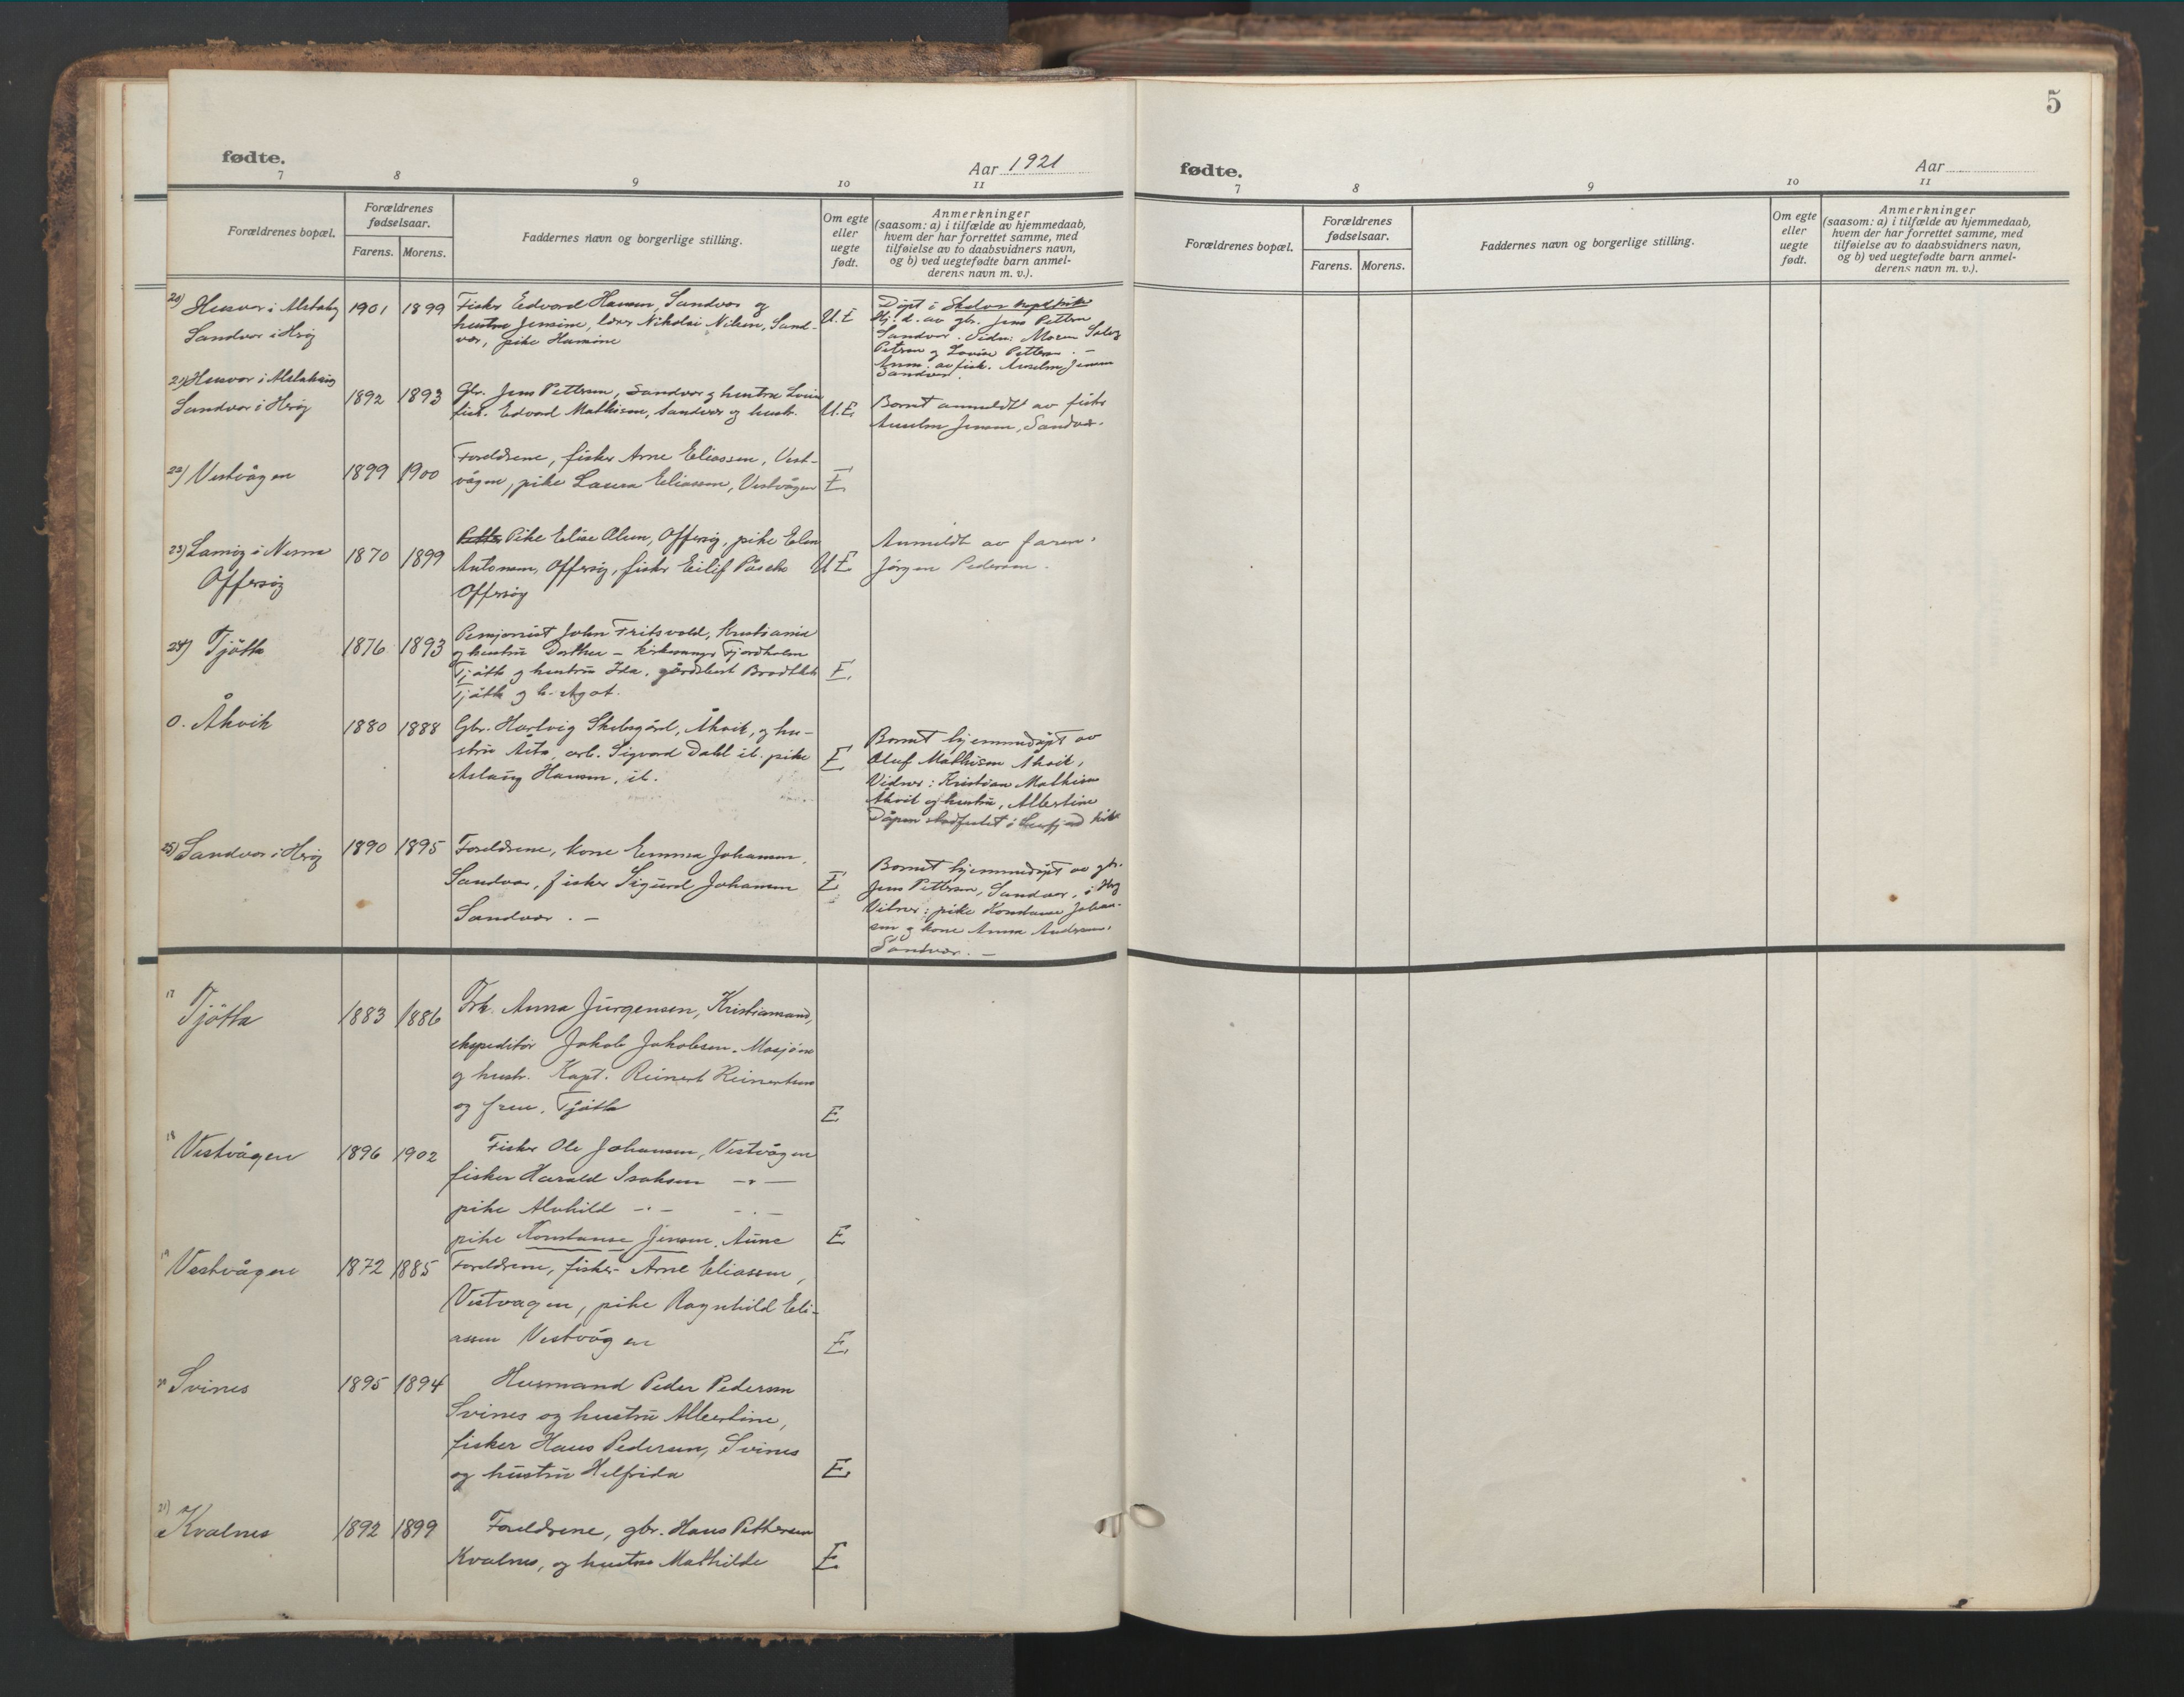 fødte.
Aar 1921
7 8 9 10 11
Forældrenes bopæl.
Forældrenes fødselsaar.
Farens. Morens.
Faddernes navn og borgerlige stilling.
Om egte eller uegte født.
Anmerkninger
(saasom: a) i tilfælde av hjemmedaab,
hvem der har forrettet samme, med
tilføielse av to daabsvidners navn,
og b) ved uegtefødte barn anmel-
derens navn m. v.).
20) Husvær i Alstahg 1901 1899 Fisker Edvard Hansen, Sandvær og U.E Döpt i
Sandvær i Heröy hustru Jensine, lærer Nikolai Nilsen, Sand- Hj. d. av gbr. Jens Pettersen
vær, pike Hansine Sandvær. Vidn: Moren
Petersen og Lovise Pettersen. –
Anm. av fisk. Anselm Jensen
Sandvær.
21) Husvær i Alstahaug
Sandvær i Heröy 1892 1893 Gbr. Jens Pettersen, Sandvær og hustru Lovise
fisk. Edvard Mathisen, Sandvær og hustr. U.E. Barnet anmeldt av fisker
Anselm Jensen, Sandvær.
22) Vestvågen 1899 1900 Foreldrene, fisker Arne Eliassen, Vest-
vågen, pike Laura Eliassen, Vestvågen E.
23) Lamöy i Nesna 1870 1899 Pike Elise Olsen, Offersöy, pike Elen
Offersöy Antonsen, Offersöy, fisker Eilif U E. Anmeldt av faren,
Offersöy Jörgen Pedersen.
24) Tjötta 1876 1893 Pensjonist John Fritsvold, Kristiania
og hustru Dorthea – kirkesanger Fjordholm
Tjötta og hustru Ida, gårdsbest Brodtkb E.
Tjötta og h. Agot.
0. Åkvik 1880 1888 Gbr. Hartvig Skelsgård, Åkvik, og hu-
stru Åsta, arb. Sigvard Dahl il. pike E
Aslaug Hansen, il.
Barnet hjemmedöpt av
Oluf Mathisen Åkvik,
Vidner: Kristian Mathisen
Åkvik og hustru, Albertine
Dåpen stadfestet i
25) Sandvær i Heröy 1890 1895 Foreldrene, kone Emma Johansen,
Sandvær, fisker Sigurd Johansen E.
Sandvær. –
Barnet hjemmedöpt av gbr.
Jens Pettersen, Sandvær, i Heröy
Vitner: pike Konstanse Johan-
sen og kone Anna Andersen,
Sandvær. –
17 Tjötta 1883 1886 Frk. Anna Jürgensen, Kristiansand,
ekspeditör Jakob Jakobsen, Mosjöen
og hustr. Kapt. Reinert Reinertsen
og frue, Tjötta E
18 Vestvågen 1896 1902 Fisker Ole Johansen, Vestvågen
fisker Harald Isaksen –"–
pike Alvhild –"– –"–
pike Konstanse Jensen, Aune E
19 Vestvågen 1872 1885 Foreldrene, fisker Arne Eliassen,
Vestvagen, pike Ragnhild Eli-
assen Vestvågen E.
20 Svines 1895 1894 Husmand Peder Pedersen
Svines og hustru Albertine,
fisker Hans Pedersen, Svines
og hustru Helfrida E.
21) Kvalnes 1892 1899 Foreldrene, gbr. Hans Pettersen
Kvalnes, og hustru Mathilde E.
5
fødte.
Aar
7 8 9 10 11
Forældrenes bopæl.
Forældrenes fødselsaar.
Farens. Morens.
Faddernes navn og borgerlige stilling.
Om egte eller uegte født.
Anmerkninger
(saasom: a) i tilfælde av hjemmedaab,
hvem der har forrettet samme, med
tilføielse av to daabsvidners navn,
og b) ved uegtefødte barn anmel-
derens navn m. v.).